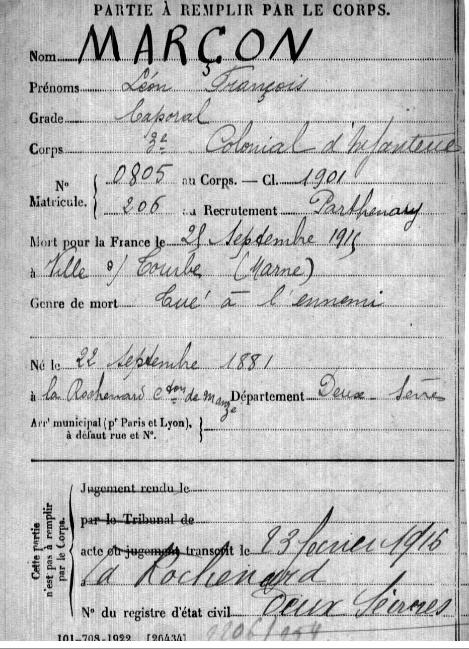 PARTIE À REMPLIR PAR LE CORPS.
Nom MARÇON
Prénoms Léon François
Grade Caporal
Corps 3e Colonial d'Infanterie
N° Matricule. { 0805 au Corps. — Cl. 1901
206 au Recrutement Parthenay
Mort pour la France le 25 Septembre 1915
à Ville s/ Tourbe (Marne)
Genre de mort Tué à l'ennemi
Né le 22 septembre 1881
à la Rochenard Cton de Département Deux Sèvres
Arrt municipal (pr Paris et Lyon),
à défaut rue et N°.
Cette partie n'est pas à remplir par le Corps.
Jugement rendu le
par le Tribunal de
acte ou jugement transcrit le 23 février 1916
à Rochenard
Deux Sèvres
N° du registre d'état civil
101-708-1922. [26434]